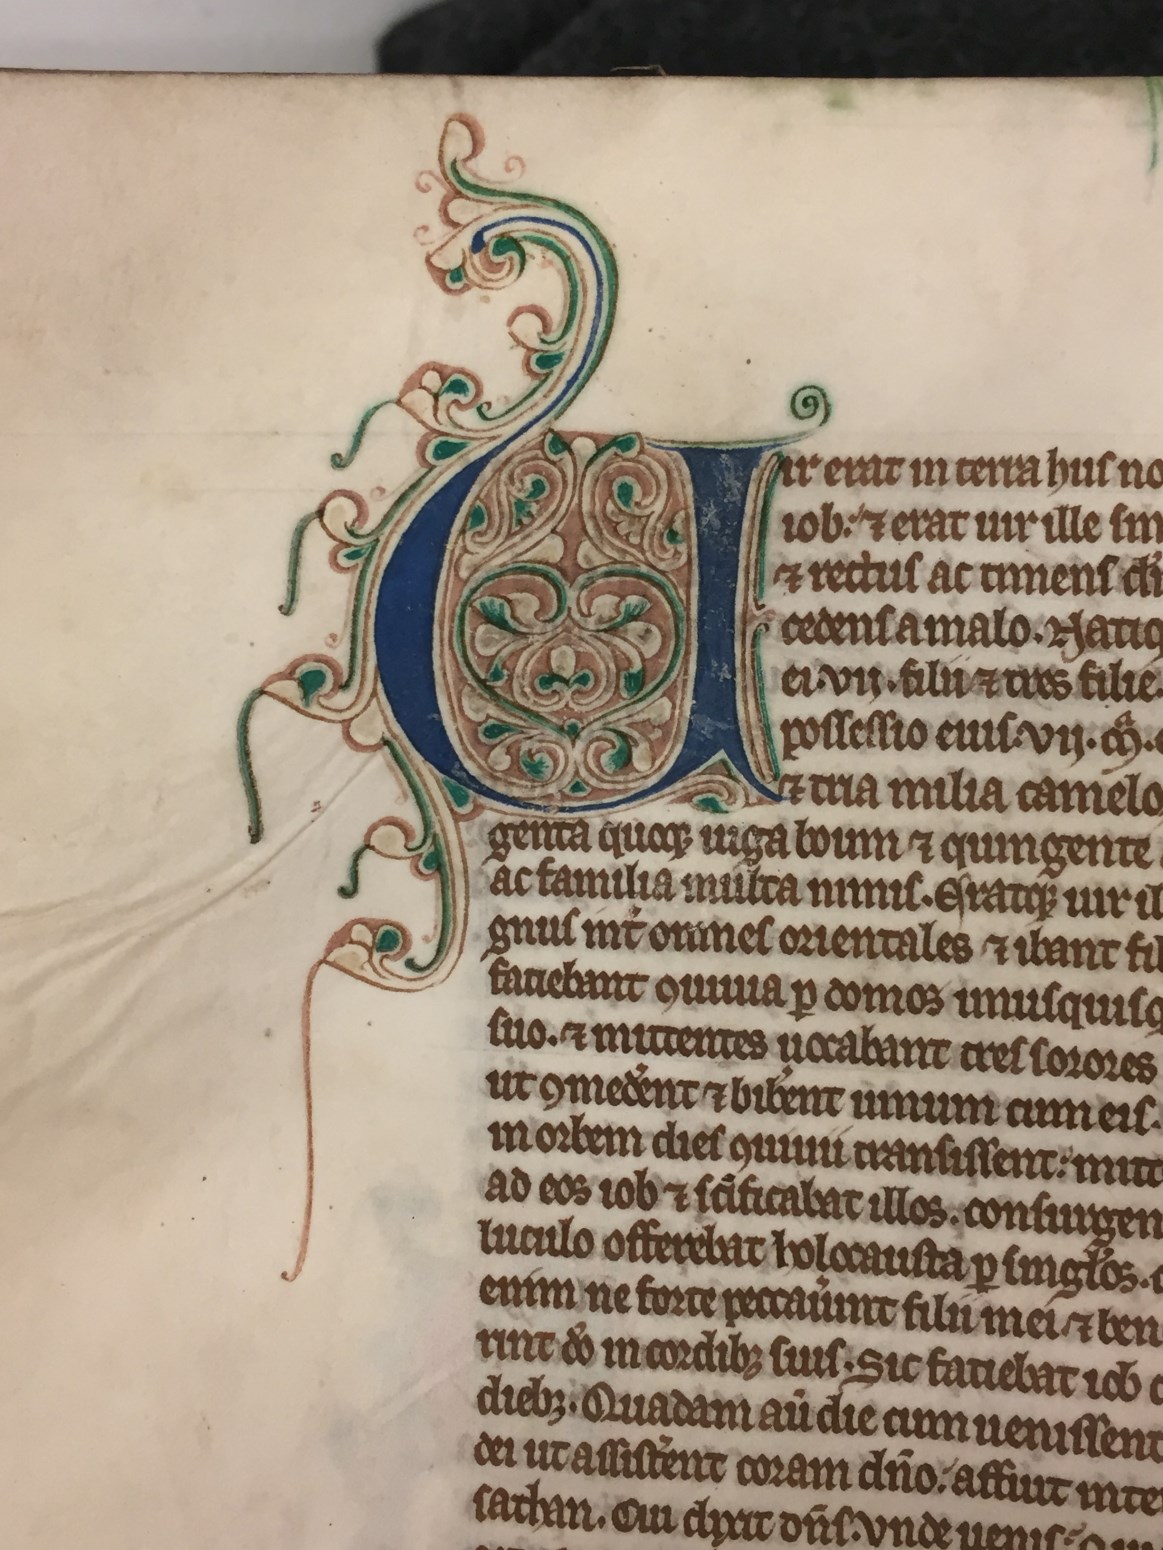 Uir erat in terra hus no
iob: ⁊ erat uir ille sim
⁊ rectus ac timens dm̄
cedens a malo. Natiq
ei .vii. filii ⁊ tres filie.
possessio eius .vii.
⁊ tria milia camelo
genta quoq; iuga boum ⁊ quingente
ac familia multa nimis. Eratq; uir il
gnus int̕ omnes orientales ⁊ ibant fil
faciebant ꝯuiuia p̱ domos unusquisq
suo. ⁊ mittentes uocabant tres sorores
ut ꝯmeder̕ent ⁊ biber̕ent uinum cum eis.
in orbem dies ꝯuiuii transissent: mitt
ad eos iob ⁊ sc̄ificabat illos. consurgen
luculo offerebat holocausta p̱ singl̕os.
enim ne forte peccau̕unt filii mei ⁊ ben
rint do̕ in cordib; suis. Sic faciebat iob
dieb;. Quadam au̅ die cum uenissent
dei ut assist̕ent coram dn̄o. affuit inte
sathan. Cui dixit dn̄s. vnde uenis: